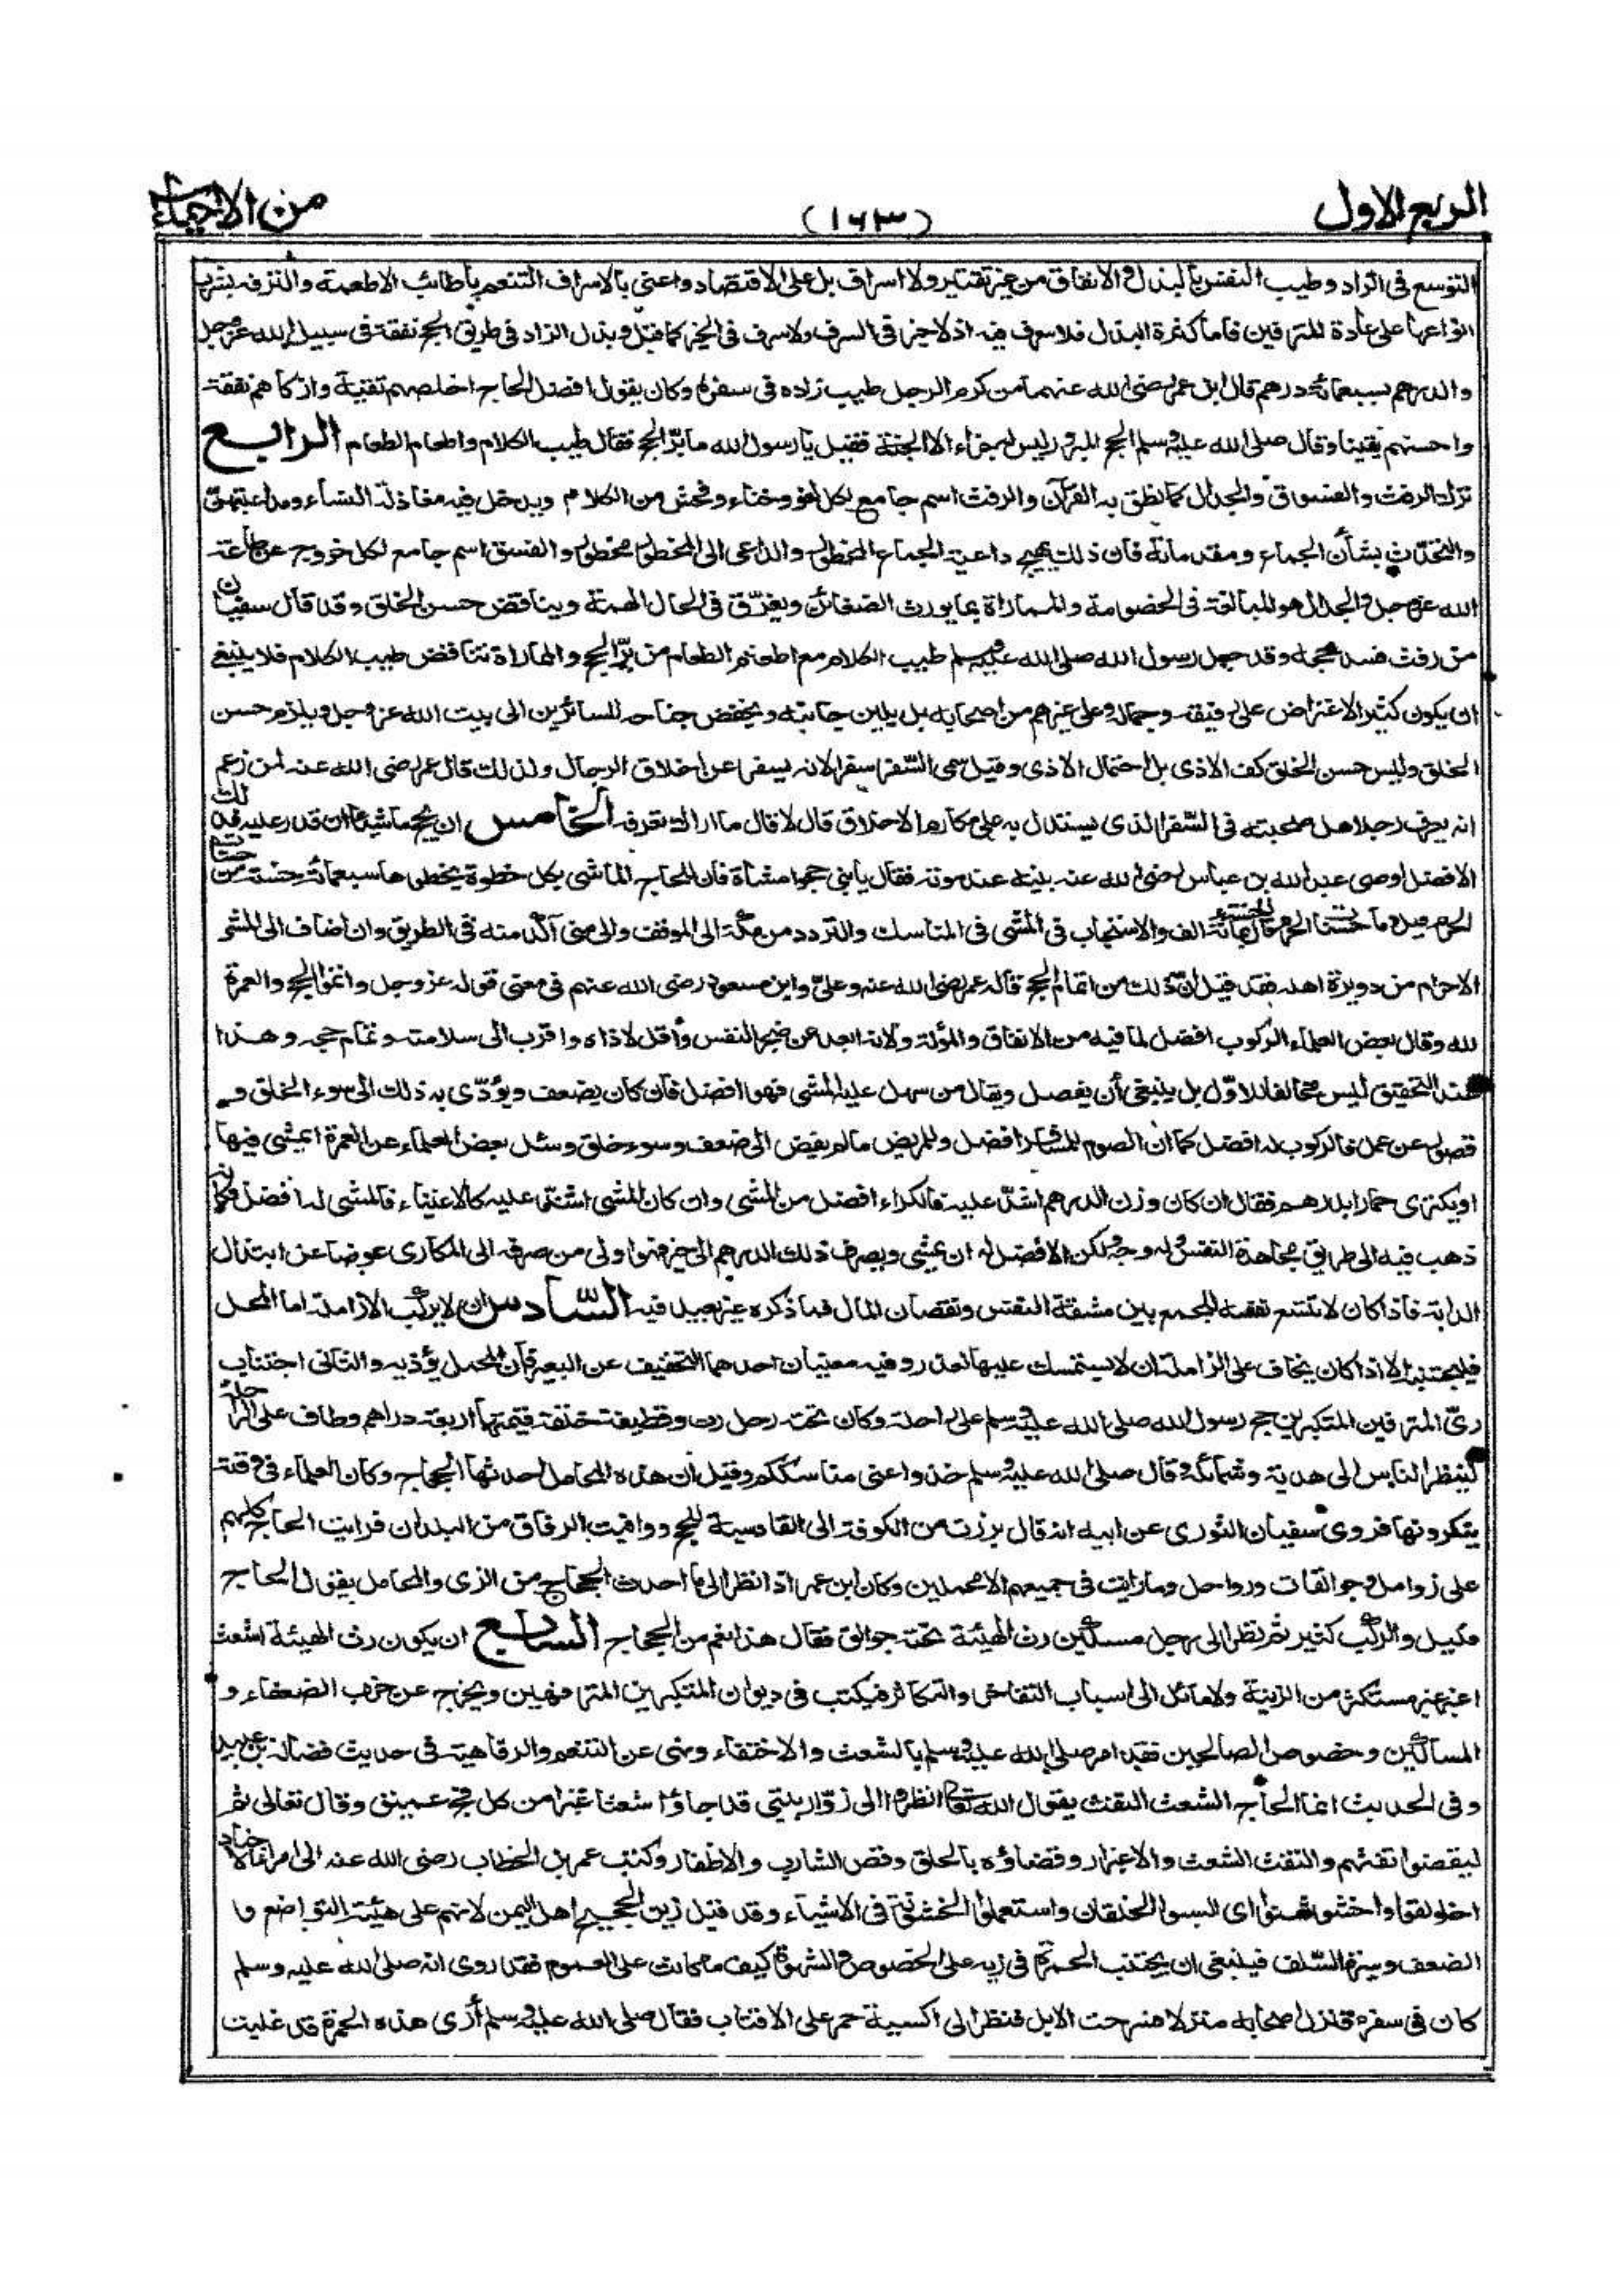 الربع الاول
(١٦٣)
من الاحياء
التوسع فى الزاد وطيب النفس بالبذل والانفاق من غير تقتير ولا اسراف بل على الاقتصاد واعنى بالاسراف التنعم بأطائب الاطعمة والترفه بشرب
انواعها على عادة المترفين فاما كثرة البذل فلا سرف فيه اذ لا خير فى السرف ولا سرف فى الخير كما قيل وبذل الزاد فى طريق الحج نفقة فى سبيل الله عز وجل
والدرهم بسبعمائة درهم قال ابن عمر رضى الله عنهما من كرم الرجل طيب زاده فى سفره وكان يقول افضل الحاج اخلصهم تقية وازكاهم نفقة
واحسنهم يقينا وقال صلى الله عليه وسلم الحج المبرور ليس له جزاء الا الجنة فقيل يا رسول الله ما بر الحج فقال طيب الكلام واطعام الطعام الرابع
ترك الرفث والفسوق والجدال كما نطق به القرآن والرفث اسم جامع لكل لغو وخناء وفحش من الكلام ويدخل فيه مغازلة النساء ومداعبتهنّ
والتحدّث بشأن الجماع ومقدماته فان ذلك يهيج داعية الجماع المحظور والداعى الى المحظور محظور والفسق اسم جامع لكل خروج عن طاعة
الله عز وجل والجدال هو المبالغة فى الخصومة والمماراة بما يورث الضغائن ويفرّق فى الحال الهمة ويناقض حسن الخلق وقد قال سفيان
من رفث فسد حجه وقد جعل رسول الله صلى الله عليه وسلم طيب الكلام مع اطعام الطعام من برّ الحج والمماراة تناقض طيب الكلام فلا ينبغى
ان يكون كثير الاعتراض على رفيقه وجماله وعلى غيرهم من اصحابه بل يلين جانبه ويخفض جناحه للسائرين الى بيت الله عز وجل ويلزم حسن
الخلق وليس حسن الخلق كف الاذى بل احتمال الاذى وقيل سمى السّفر سفرا لانه يسفر عن اخلاق الرجال ولذلك قال عمر رضى الله عنه لمن زعم
انه يعرف رجلا هل صحبته فى السّفر الذى يستدل به على مكارم الاخلاق قال لا قال ما اراك تعرفه الخامس ان يحج ماشيا ان قدر عليه فذلك
الافضل اوصى عبد الله بن عباس رضى الله عنه بنيه عند موته فقال يا بنى حجوا مشاة فان للحاج الماشى بكل خطوة يخطوها سبعمائة حسنة من حسنات
الحرم قيل وما حسنات الحرم قال الحسنة بمائة الف والاستحباب فى المشى فى المناسك والتردد من مكّة الى الموقف والى منى آكد منه فى الطريق وان اضاف الى المشى
الاحرام من دويرة اهله فقد قيل انّ ذلك من اتمام الحج قاله عمر رضى الله عنه وعلىّ وابن مسعود رضى الله عنهم فى معنى قوله عز وجل واتموا الحج والعمرة
لله وقال بعض العلماء الركوب افضل لما فيه من الانفاق والمؤنة ولانه ابعد عن ضجر النفس وأقل لاذاه واقرب الى سلامته وتمام حجه وهذا
عند التحقيق ليس مخالفا للاوّل بل ينبغى أن يفصل ويقال من سهل عليه المشى فهو افضل فان كان يضعف ويؤدّى به ذلك الى سوء الخلق و
قصور عن عمل فالركوب له افضل كما ان الصوم للمسافر افضل وللمريض ما لم يفض الى ضعف وسوء خلق وسئل بعض العلماء عن العمرة ايمشى فيها
او يكترى حمارا بدرهم فقال ان كان وزن الدرهم اشدّ عليه فالكراء افضل من المشى وان كان المشى اشدّ عليه كالاغنياء فالمشى له افضل فكانه
ذهب فيه الى طريق مجاهدة النفس وله وجه ولكن الافضل له ان يمشى ويصرف ذلك الدرهم الى خير فهو اولى من صرفه الى المكارى عوضا عن ابتذال
الدابة فاذا كان لا تتسع نفسه للجمع بين مشقة النفس ونقصان المال فما ذكره غير بعيد فيه السّادس ان لا يركب الا زاملة اما المحمل
فليجتنبه الا اذا كان يخاف على الزاملة ان لا يستمسك عليها لعذر وفيه معنيان احدهما التخفيف عن البعير فان المحمل يؤذيه والثانى اجتناب
زىّ المترفين المتكبرين حج رسول الله صلى الله عليه وسلم على راحلة وكان تحته رحل رث وقطيفة خلقة قيمتها اربعة دراهم وطاف على الراحلة
لينظر الناس الى هديه وشمائله وقال صلى الله عليه وسلم خذوا عنى مناسككم وقيل ان هذه المحامل احدثها الحجاج وكان العلماء فى وقته
ينكرونها فروى سفيان الثورى عن ابيه انه قال برزت من الكوفة الى القادسية للحج ووافيت الرفاق من البلدان فرايت الحاج كلهم
على زوامل وجوالقات ورواحل وما رايت فى جميعهم الا محملين وكان ابن عمر اذا نظر الى ما احدث الحجاج من الزى والمحامل يقول الحاج
قليل والركب كثير ثم نظر الى رجل مسكين رث الهيئة تحته جوالق فقال هذا نعم من الحجاج السابع ان يكون رث الهيئة اشعث
اغبر غير مستكثر من الزينة ولا مائل الى اسباب التفاخر والتكاثر فيكتب فى ديوان المتكبرين المترفهين ويخرج عن حزب الضعفاء و
المساكين وخصوص الصالحين فقد امر صلى الله عليه وسلم بالشعث والاختفاء ونهى عن التنعم والرفاهية فى حديث فضالة بن عبيد
وفى الحديث انما الحاج الشعث التفث يقول الله تعالى انظروا الى زوّار بيتى قد جاؤا شعثا غبرا من كل فج عميق وقال تعالى ثم
ليقضوا تفثهم والتفث الشعث والاغبرار وقضاؤه بالحلق وقص الشارب والاظفار وكتب عمر بن الخطاب رضى الله عنه الى امراء الاجناد
اخلولقوا واخشوشنوا اى البسوا الخلقان واستعملوا الخشونة فى الاشياء وقد قيل زين الحجيج اهل اليمن لانهم على هيئة التواضع و
الضعف وسيرة السّلف فينبغى ان يجتنب الحمرة فى زيه على الخصوص والشهرة كيف ما كانت على العموم فقد روى انه صلى الله عليه وسلم
كان فى سفر فنزل اصحابه منزلا فسرحت الابل فنظر الى اكسية حمر على الاقتاب فقال صلى الله عليه وسلم أرى هذه الحمرة قد غلبت